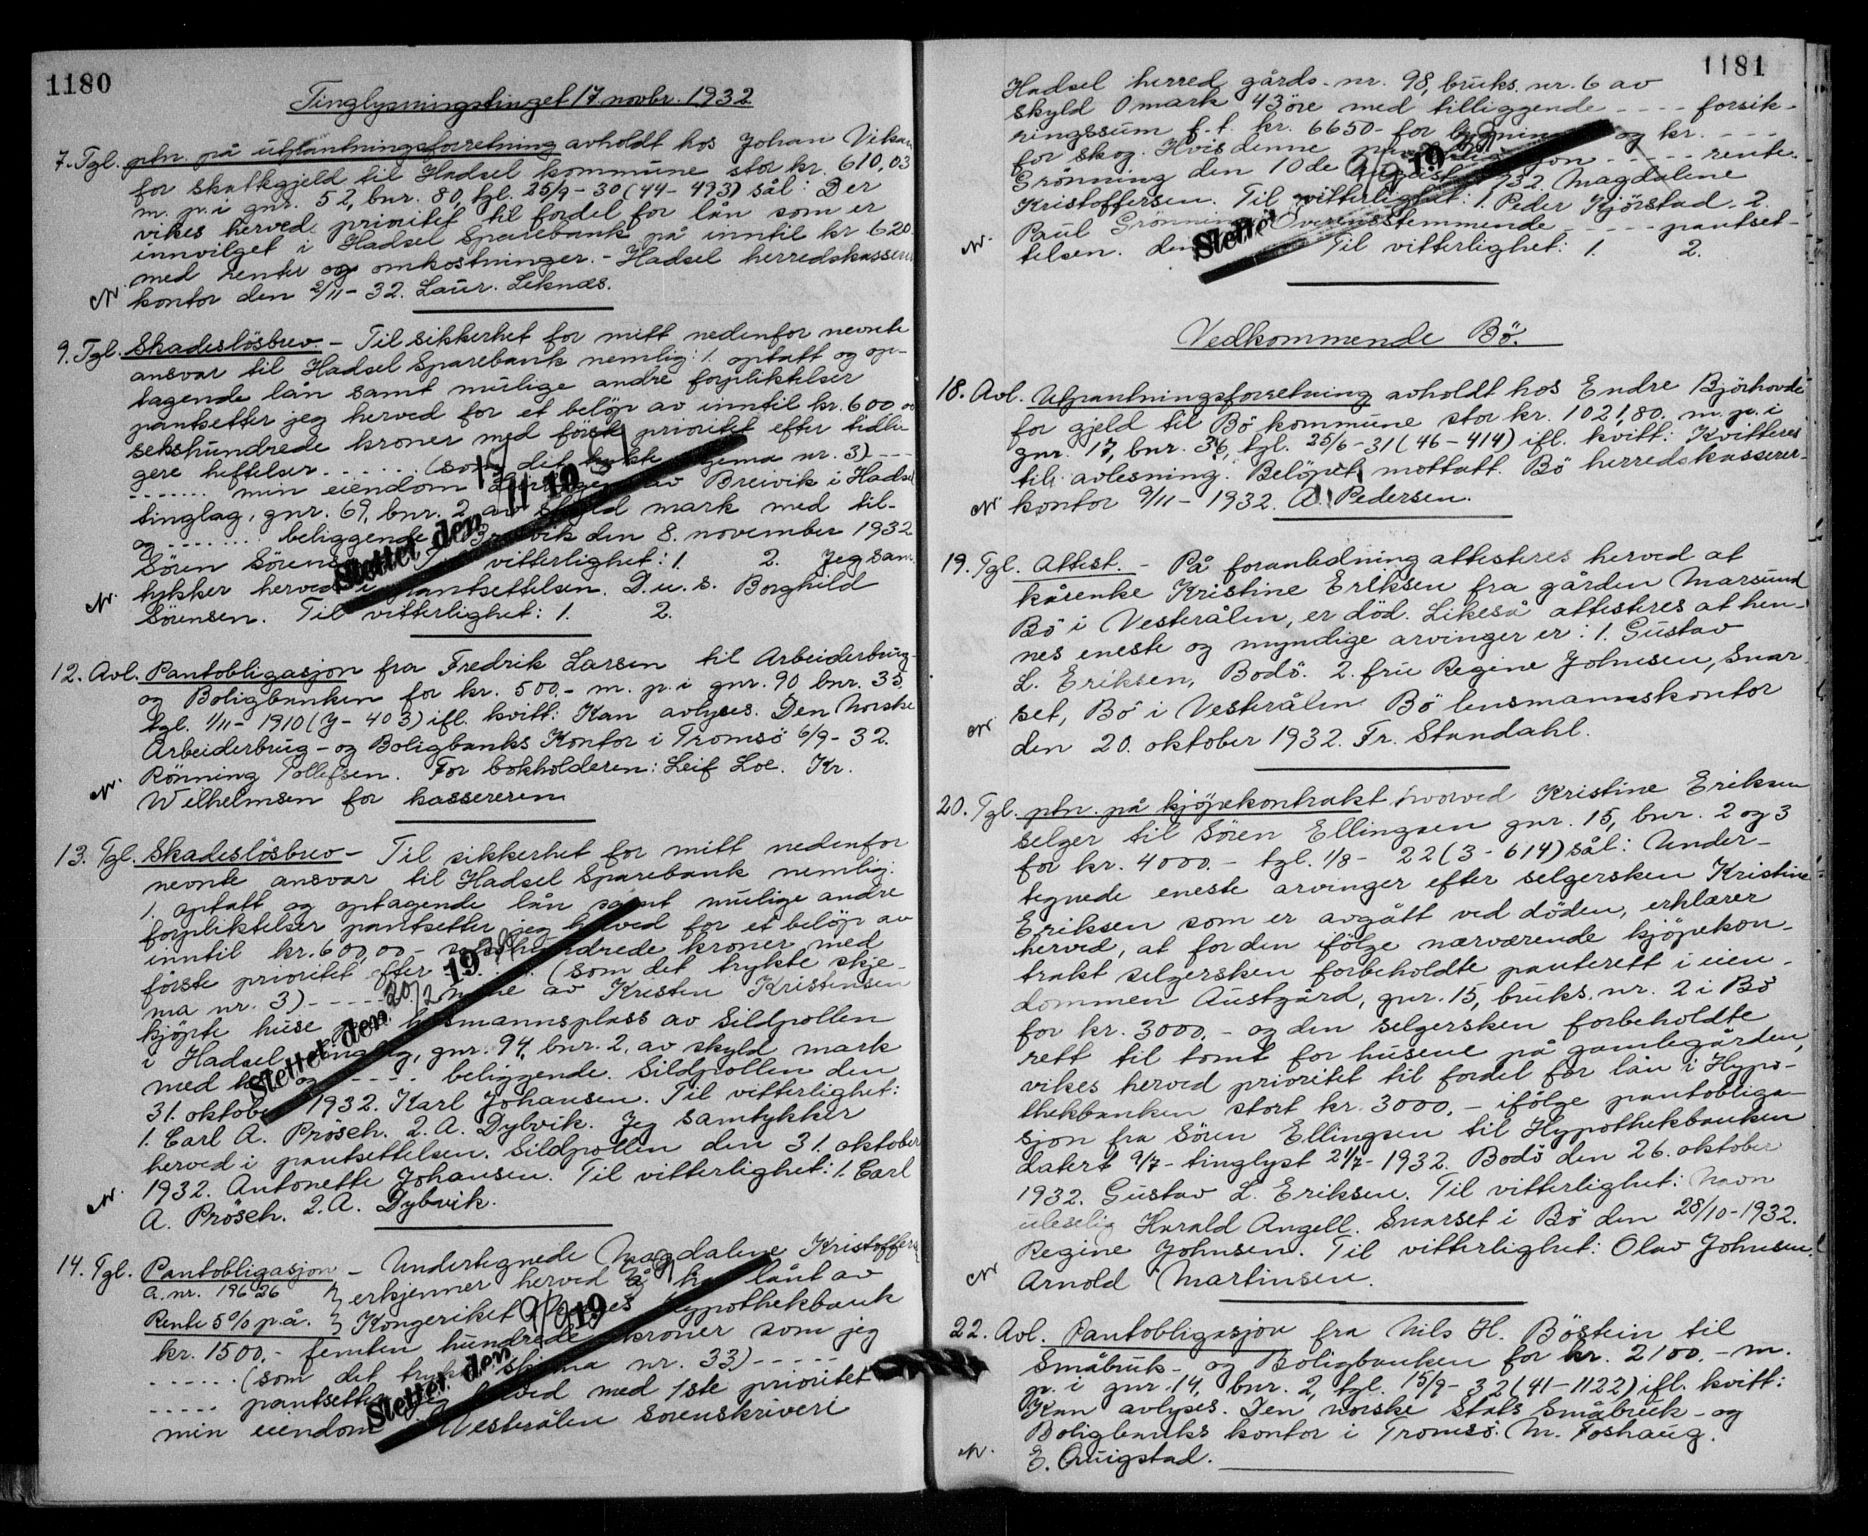 1180
Tinglysningstinget 17 novbr. 1932
7. Tgl. ptn. på utpantningsforretning avholdt hos Johan Vikan
for skatkgjeld til Hadsel kommune stor kr. 610,03
m. p. i gnr. 52, bnr. 80, tgl. 25/9-30 (44-493) sål: Der
vikes herved prioritet til fordel for lån som er
innvilget i Hadsel Sparebank på inntil kr 620.
med renter og omkostninger. - Hadsel herredskasserer
kontor den 2/11-32. Laur. Leknæs.
9. Tgl. Skadeslösbrev. - Til sikkerhet for mitt nedenfor nevnte
ansvar til Hadsel Sparebank nemlig: 1. optatt og op-
tagende lån samt mulige andre forpliktelser
pantsetter jeg herved for et belöp av inntil kr. 600 00
sekshundrede kroner med först prioritet efter tidli-
gere heftelser. ..... (som det trykte skjema nr. 3) ---
....... min eiendom av Breivik i Hadsel
tinglag, gnr. 69, bnr. 2 av skyld mark med til-
og ........ beliggende Breivik den 8. november 1932
Sören Sörensen Til vitterlighet: 1. 2. Jeg sam-
tykker herved i pantsettelsen. D. u. s. Borghild
Sörensen. Til vitterlighet: 1. 2.
Slettet den 15/11 19
12. Avl. Pantobligasjon fra Fredrik Larsen til Arbeiderbrug-
og Boligbanken for kr. 500.- m. p. i gnr. 90 bnr. 35,
tgl. 1/11-1910 (Y-403) ifl. kvitt: Kan avlyses. Den Norske
Arbeiderbrug- og Boligbanks Kontor i Tromsö 6/9-32.
Rönning Tollefsen. For bokholderen: Leif Loe. Kr.
Wilhelmsen for kassereren
13. Tgl. Skadeslösbrev - Til sikkerhet for mitt nedenfor
nevnte ansvar til Hadsel Sparebank nemlig:
1. optatt og optagende lån samt mulige andre
forpliktelser pantsetter jeg herved for et belöp av
inntil kr. 600,00 - sekshundrede kroner med
förste prioritet efter ..... (som det trykte skje-
ma nr. 3) ----- mine av Kristen Kristensen
kjöpte huse på husmannsplass av Sildpollen
i Hadsel tinglag, gnr. 94, bnr. 2, av skyld mark
med til- og ----. beliggende. Sildpollen den
31. oktober 1932. Karl Johansen. Til vitterlighet:
1. Carl A. Prösch. 2. A. Dybvik. Jeg samtykker
herved i pantsettelsen. Sildpollen den 31. oktober
1932. Antonette Johansen. Til vitterlighet: 1. Carl
A. Prösch. 2. A. Dybvik.
Slettet den 20/2 19
14. Tgl. Pantobligasjon - Undertegnede Magdalene Kristoffersen
A. nr. 196 26 } erkjenner herved å ha lånt av
Rente 5% p. å. } Kongeriket Norges Hypothekbank
kr. 1500.- femten hundrede kroner som jeg
...... (som det trykte skjema nr. 33) -----
..... pantsetter jeg herved med 1ste prioritet
min eiendom Vesterålen Sorenskriveri
Slettet den 9/9 19
1181
Hadsel herred gårds-nr. 98, bruks nr. 6 av
skyld 0 mark 43 öre med tilliggende ---- forsik-
ringssum f. t. kr. 6650- for bygninger og kr. ---
for skog. Hvis denne ----- rente.
Grönning den 10de August 1932. Magdalene
Kristoffersen. Til vitterlighet: 1. Peder Kjörstad. 2.
Paul Grönning. Overensstemmende ----- pantset-
telsen. den Til vitterlighet: 1. 2.
Slettet 19
Vedkommende Bö.
18. Avl. Utpantningsforretning avholdt hos Endre Björhovde
for gjeld til Bö kommune stor kr. 1021,80. m. p. i
gnr. 17, bnr. 36, tgl. 25/6-31 (46-414) ifl. kvitt: Kvitteres
til avlesning. Belöpet mottatt. Bö herredskasserer-
kontor 9/11-1932. A. Pedersen.
19. Tgl. Attest. - På foranledning attesteres herved at
kårenke Kristine Eriksen fra gården Marsund
Bö i Vesterålen, er död. Likeså attesteres at hen-
nes eneste og myndige arvinger er: 1. Gustav
L. Eriksen, Bodö. 2. fru Regine Johnsen, Snar-
set, Bö i Vesterålen Bö lensmannskontor
den 20. oktober 1932. Fr. Standahl.
20. Tgl. ptn. på kjöpekontrakt hvorved Kristine Eriksen
selger til Sören Ellingsen gnr. 15, bnr. 2 og 3
for kr. 4000.- tgl. 1/8-22 (3-614) sål: Under-
tegnede eneste arvinger efter selgersken Kristine
Eriksen som er avgått ved döden, erklærer
herved, at for den ifölge nærværende kjöpekon-
trakt selgersken forbeholdte panterett i eien-
dommen Austgård, gnr. 15, bruks. nr. 2 i Bö
for kr. 3000.- og den selgersken forbeholdte
rett til tomt for husene på gamlegården,
vikes herved prioritet til fordel for lån i Hypo-
thekbanken stort kr. 3000.- ifölge pantobliga-
sjon fra Sören Ellingsen til Hypothekbanken
datert 9/7- tinglyst 21/7-1932. Bodö den 26. oktober
1932. Gustav L. Eriksen. Til vitterlighet: Navn
uleselig Harald Angell. Snarset i Bö den 28/10-1932.
Regine Johnsen. Til vitterlighet: Olav Johnsen.
Arnold Martinsen.
22. Avl. Pantobligasjon fra Nils H. Böstein til
Småbruk- og Boligbanken for kr. 2100.- m.
p. i gnr. 14, bnr. 2, tgl. 15/9-32 (41-1122) ifl. kvitt:
Kan avlyses. Den norske stats Småbruk- og
Boligbanks kontor i Tromsö. M. Foshaug.
E. Quigstad.